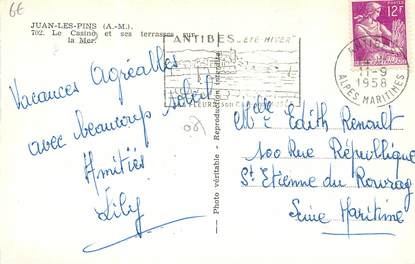 6€
JUAN-LES-PINS (A.-M.).
702. Le Casino et ses terrasses sur
la Mer.
ANTIBES "ÉTÉ-HIVER"
POSTES
12F
11-9
1958
ALPES MARITIMES
Vacances agréables
avec beaucoup soleil
Amitiés
Lily
(06)
Photo véritable - Reproduction interdite
Melle Edith Renoult
100 Rue République
St Etienne du Rouvray
Seine Maritime